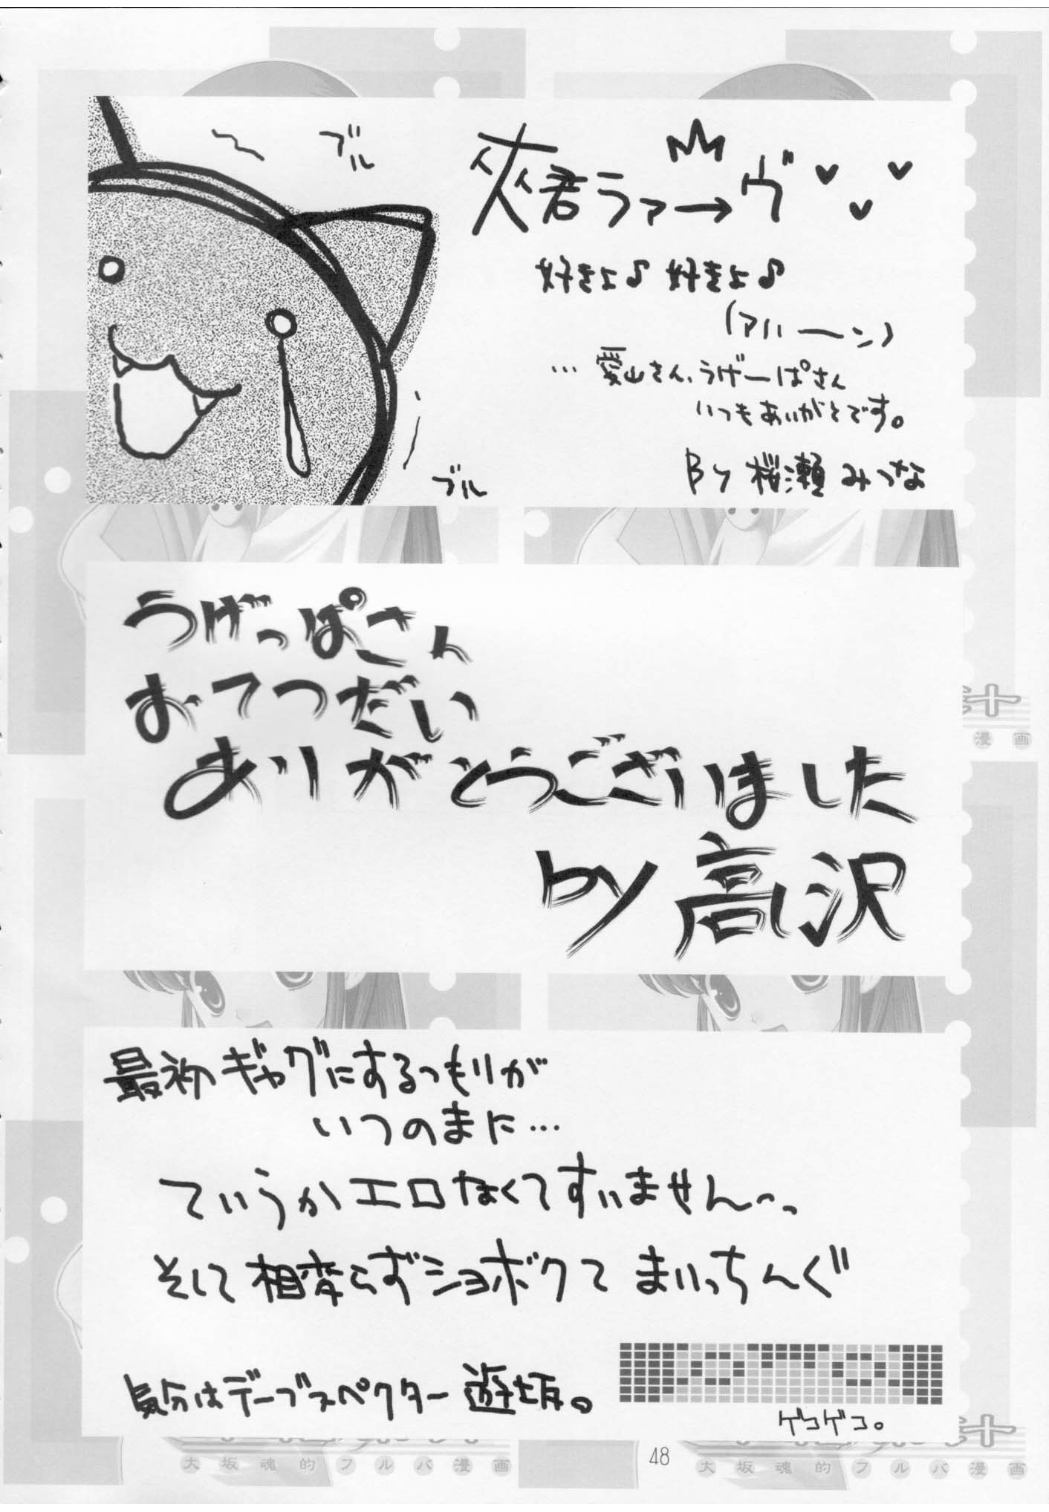 ブル
夾君ラァ→ヴ
好きよ♪ 好きよ♪
(アハーン)
… 愛山さん、うげーぱさん
いつもありがとです。
By 桜瀬みつな
ブル
うげっぱさん
おてつだい
ありがとうございました
by 高沢
最初ギャグにするつもりが
いつのまに…
ていうかエロなくてすいません~っ
そして相変らずショボクて まいっちんぐ
気分はデーブスペクター 遊坂。
ゲコゲコ。
漫画
48
大坂魂的フルバ漫画
大坂魂的フルバ漫画